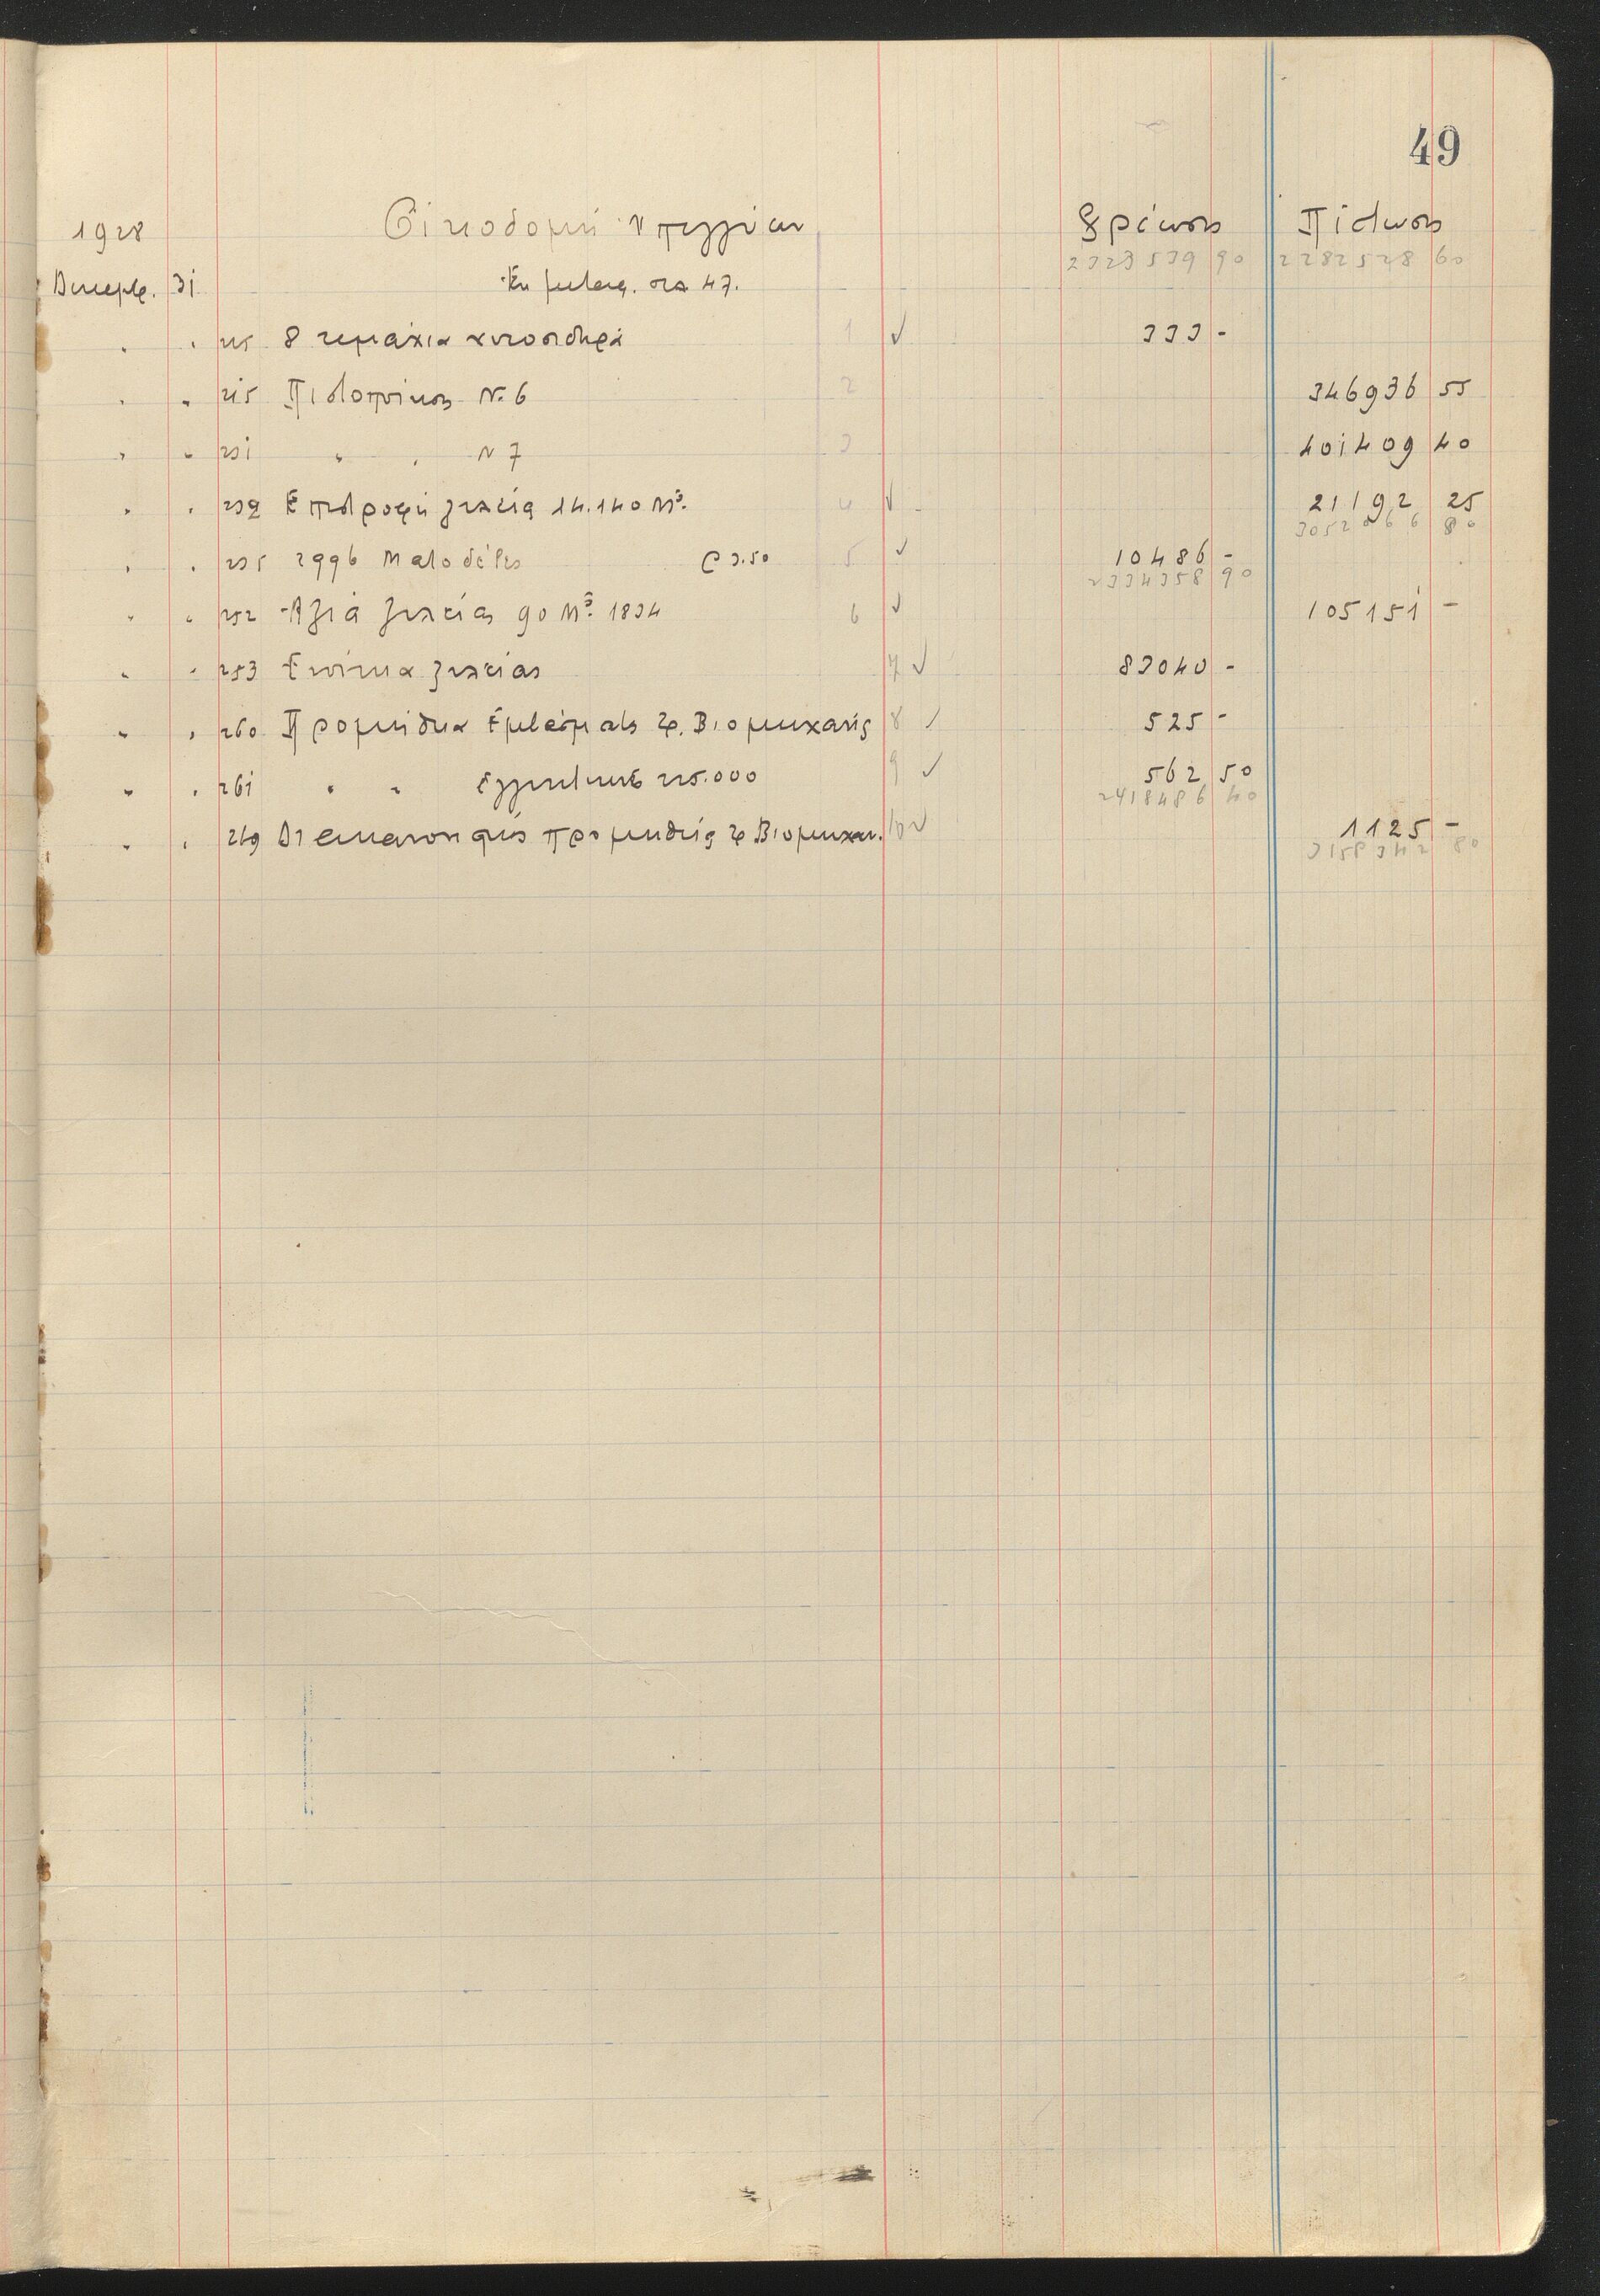 49
1928 Οἰκοδομὴ Χρέωσις Πίστωσις
2323539 90 2282528 60
Δεκεμβ. 31 Ἐκ μεταφ. σελ 47.
" " 215 8 τεμάχια χυτοσιδηρᾶ 1 √ 333 -
" " 215 Πιστοποίησις Ν. 6 2 346936 55
" " 231 " " Ν 7 3 401409 40
" " 232 Ἐπιστροφὴ ξυλείας 14.140 Μ³. 4 √ 21192 25
3052066 80
" " 235 2996 3.50 5 √ 10486 -
2334358 90
" " 252 Ἀξία ξυλείας 90 Μ³. 1834 6 √ 105151 -
" " 253 Ἐνοίκια ξυλείας 7 √ 83040 -
" " 260 Προμήθεια Ἐμβάσματος Τρ. Βιομηχανίας 8 √ 525 -
" " 261 " " Ἐγγυητικῆς 225.000 9 √ 562 50
2418486 40
" " 269 προμηθείας Τρ Βιομηχαν. 10 √ 1125 -
3158342 80